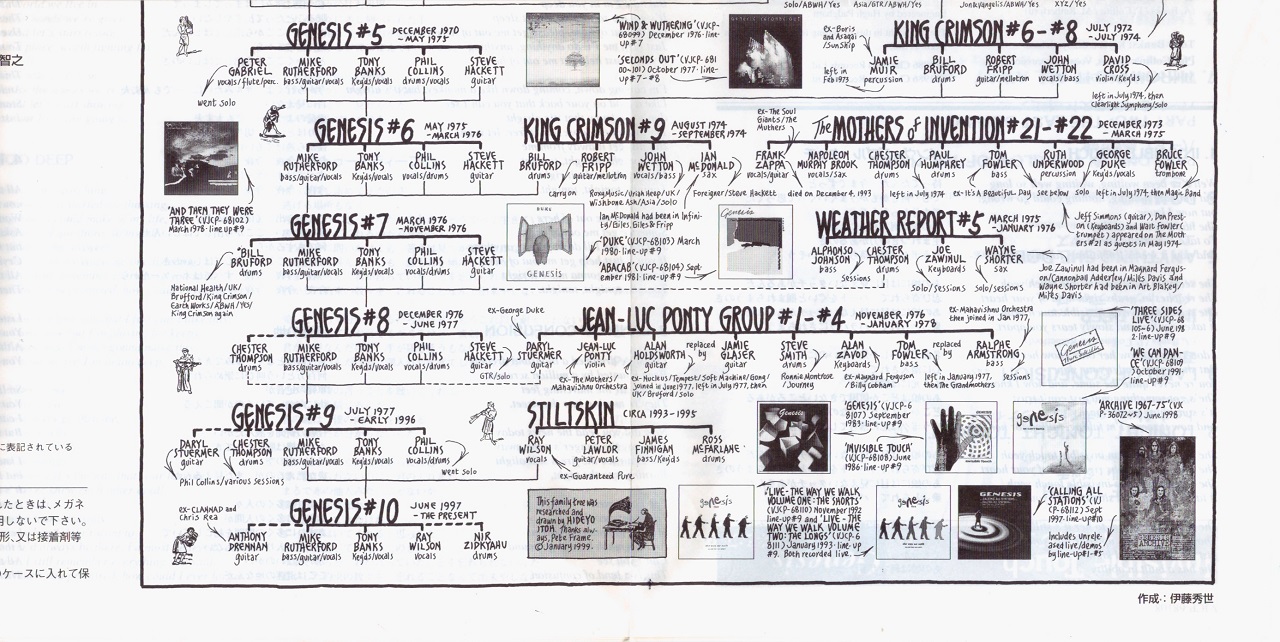 Solo/ABWH/Yes
Asia/GTR/ABWH/Yes
Jon&Vangelis/ABWH/Yes
XYZ/Yes
智之
GENESIS #5
DECEMBER 1970
~MAY 1975
PETER
GABRIEL
vocals/flute/perc.
MIKE
RUTHERFORD
bass/guitar/vocals
TONY
BANKS
Keyds/vocals
PHIL
COLLINS
drums/vocals
STEVE
HACKETT
guitar
went solo
'WIND & WUTHERING' (VJCP-
68099) December 1976·line-
up #7
'SECONDS OUT' (VJCP-681
00~101) October 1977·line-
up #7~#8
ex-Boris
and Assagi
/Sunship
KING CRIMSON #6~#8
JULY 1972
~JULY 1974
left in
Feb 1973
JAMIE
MUIR
percussion
BILL
BRUFORD
drums
ROBERT
FRIPP
guitar/mellotron
JOHN
WETTON
vocals/bass
DAVID
CROSS
violin/Keyds
left in July 1974, then
Clearlight Symphony/solo
GENESIS #6
MAY 1975
~MARCH 1976
MIKE
RUTHERFORD
bass/guitar/vocals
TONY
BANKS
Keyds/vocals
PHIL
COLLINS
vocals/drums
STEVE
HACKETT
guitar
KING CRIMSON #9
AUGUST 1974
~SEPTEMBER 1974
BILL
BRUFORD
drums
ROBERT
FRIPP
guitar/mellotron
JOHN
WETTON
vocals/bass
IAN
McDONALD
sax
carry on
Roxy Music/Uriah Heep/UK/
Wishbone Ash/Asia/solo
Foreigner/Steve Hackett
Ian McDonald had been in Infini-
ty/Giles, Giles & Fripp
ex-The Soul
Giants/The
Mothers
The MOTHERS of INVENTION #21~#22
DECEMBER 1973
~MARCH 1975
FRANK
ZAPPA
vocals/guitar
NAPOLEON
MURPHY BROOK
vocals/sax
CHESTER
THOMPSON
drums
PAUL
HUMPHREY
drums
TOM
FOWLER
bass
RUTH
UNDERWOOD
percussion
GEORGE
DUKE
Keyds/vocals
BRUCE
FOWLER
trombone
died on December 4, 1993
left in July 1974
ex-It's A Beautiful Day
see below
solo
left in July 1974, then Magic Band
'AND THEN THEY WERE
THREE' (VJCP-68102)
March 1978·line-up #9
GENESIS #7
MARCH 1976
~NOVEMBER 1976
BILL
BRUFORD
drums
MIKE
RUTHERFORD
bass/guitar/vocals
TONY
BANKS
Keyds/vocals
PHIL
COLLINS
vocals/drums
STEVE
HACKETT
guitar
National Health/UK/
Bruford/King Crimson/
Earth Works/ABWH/Yes/
King Crimson again
DUKE
GENESIS
'DUKE' (VJCP-68103) March
1980·line-up #9
'ABACAB' (VJCP-68104) Sept
ember 1981·line-up #9
Genesis
WEATHER REPORT #5
MARCH 1975
~JANUARY 1976
ALPHONSO
JOHNSON
bass
CHESTER
THOMPSON
drums
JOE
ZAWINUL
Keyboards
WAYNE
SHORTER
sax
sessions
solo/sessions
solo/sessions
Jeff Simmons (guitar), Don Prest-
on (Keyboards) and Walt Fowler(
trumpet) appeared on The Moth
ers #21 as guests in May 1974
Joe Zawinul had been in Maynard Fergus-
on/Cannonball Adderley/Miles Davis and
Wayne Shorter had been in Art Blakey/
Miles Davis
GENESIS #8
DECEMBER 1976
~JUNE 1977
CHESTER
THOMPSON
drums
MIKE
RUTHERFORD
bass/guitar/vocals
TONY
BANKS
Keyds/vocals
PHIL
COLLINS
vocals/drums
STEVE
HACKETT
guitar
GTR/solo
ex-George Duke
JEAN-LUC PONTY GROUP #1~#4
NOVEMBER 1976
~JANUARY 1978
ex-Mahavishnu Orchestra
then joined in Jan 1977,
DARYL
STUERMER
guitar
JEAN-LUC
PONTY
violin
ALAN
HOLDSWORTH
guitar
replaced
by
JAMIE
GLASER
guitar
STEVE
SMITH
drums
ALAN
ZAVOD
Keyboards
TOM
FOWLER
bass
replaced
by
RALPHE
ARMSTRONG
bass
ex-The Mothers/
Mahavishnu Orchestra
ex-Nucleus/Tempest/Soft Machine/Gong/
joined in June 1977, left in July 1977, then
UK/Bruford/Solo
Ronnie Montrose
/Journey
ex-Maynard Ferguson
/Billy Cobham
left in January 1977,
then The Grandmothers
sessions
Genesis
'THREE SIDES
LIVE' (VJCP-68
105~6) June 198
2·line-up #9
'WE CAN DAN-
CE' (VJCP-68109
) October 1991·
line-up #9
GENESIS #9
JULY 1977
~EARLY 1996
DARYL
STUERMER
guitar
CHESTER
THOMPSON
drums
MIKE
RUTHERFORD
bass/guitar/vocals
TONY
BANKS
Keyds/vocals
PHIL
COLLINS
vocals/drums
went solo
Phil Collins/various sessions
STILTSKIN
CIRCA 1993~1995
RAY
WILSON
vocals
PETER
LAWLOR
guitar/vocals
JAMES
FINNIGAN
bass/Keyds
ROSS
McFARLANE
drums
ex-Guaranteed Pure
Genesis
'GENESIS' (VJCP-6
8107) September
1983·line-up #9
'INVISIBLE TOUCH'
(VJCP-68108) June
1986·line-up #9
genesis
'ARCHIVE 1967-75' (VJC
P-36072~5) June 1998
に表記されている
したときは、メガネ
用しないで下さい。
形、又は接着剤等
のケースに入れて保
ex-CLANNAD and
Chris Rea
GENESIS #10
JUNE 1997
~THE PRESENT
ANTHONY
DRENNAN
guitar
MIKE
RUTHERFORD
bass/guitar/vocals
TONY
BANKS
Keyds/vocals
RAY
WILSON
vocals
NIR
ZIDKYAHU
drums
This family tree was
researched and
drawn by HIDEYO
ITOH. Thanks alw-
ays, Pete Frame.
©January 1999.
genesis
'LIVE-THE WAY WE WALK
VOLUME ONE: THE SHORTS'
(VJCP-68110) November 1992
line-up #9 and 'LIVE-THE
WAY WE WALK VOLUME
TWO: THE LONGS' (VJCP-6
8111) January 1993·line-up
#9. Both recorded live.
genesis
GENESIS
'CALLING ALL
STATIONS' (VJ
CP-68112) Sept
1997·line-up #10
Includes unrele-
ased live/demos
by line-up #1~#5
作成：伊藤秀世